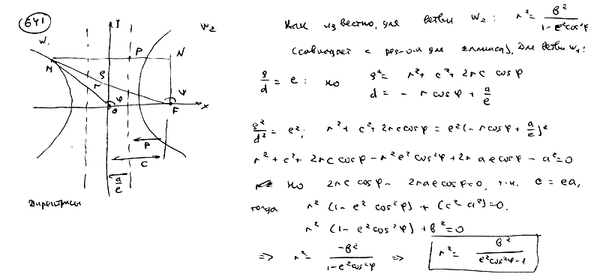 641
Y
W₁
W₂
M
P
N
ρ
r
φ
ψ
O
F
x
P
C
a/e
Директрисы
Как известно, для ветви W₂: r² = b²/(1-e²cos²φ)
(совпадает с рез-ом для эллипса), Для ветви W₁:
ρ/d = e; но ρ² = r² + c² + 2rc cosφ
d = - r cosφ + a/e
ρ²/d² = e²; r² + c² + 2rc cosφ = e²(-r cosφ + a/e)²
r² + c² + 2rc cosφ - r²e²cos²φ + 2r ae cosφ - a² = 0
Но 2rc cosφ - 2rae cosφ = 0, т.к. c = ea,
тогда r²(1-e²cos²φ) + (c²-a²) = 0.
r²(1-e²cos²φ) + b² = 0
=> r² = -b²/(1-e²cos²φ) => r² = b²/(e²cos²φ-1)